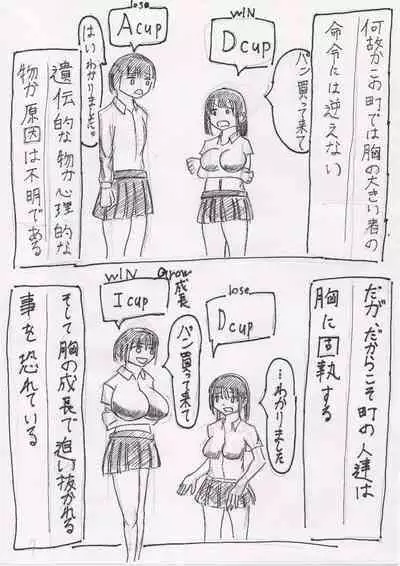 何故かこの町では胸の大きい者の
命令には逆えない
WIN
Dcup
パン買って来て
lose
Acup
はいわかりました。
遺伝的な物か心理的な
物か原因は不明である
だが、だからこそ町の人達は
胸に固執する
lose
Dcup
…わかりました
WIN
Grow成長
Icup
パン買って来て
そして胸の成長で追い抜かれる
事を恐れている